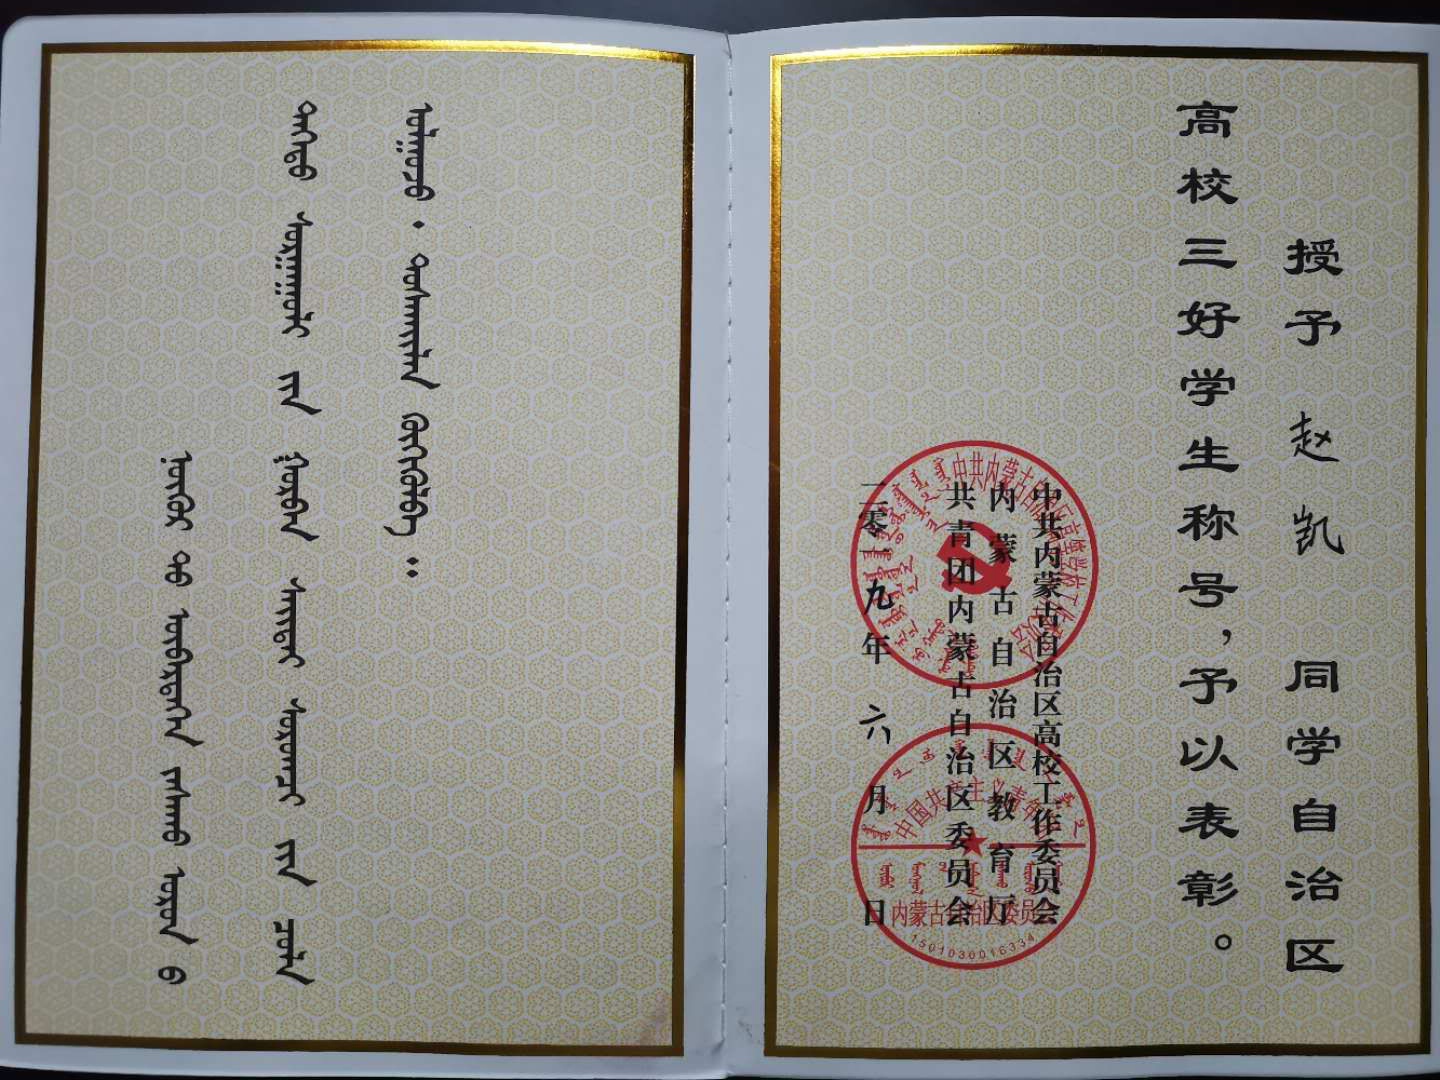 ᠨᠥᠬᠥᠷ ᠲᠦ ᠥᠪᠡᠷᠲᠡᠭᠡᠨ ᠵᠠᠰᠠᠬᠤ ᠣᠷᠣᠨ ᠤ
ᠳᠡᠭᠡᠳᠦ ᠰᠤᠷᠭᠠᠭᠤᠯᠢ ᠶᠢᠨ ᠭᠤᠷᠪᠠᠨ ᠰᠠᠶᠢᠲᠤ ᠰᠤᠷᠤᠭᠴᠢ ᠶᠢᠨ ᠴᠣᠯᠠ
ᠣᠯᠭᠣᠵᠤ᠂
授予 赵凯 同学自治区
高校三好学生称号，予以表彰。
中共内蒙古自治区高校工作委员会
内蒙古自治区教育厅
共青团内蒙古自治区委员会
二零一九年六月 日
中共内蒙古自治区高等学校工作委员会
中国共产主义青年团
内蒙古自治区委员会
1501030016334